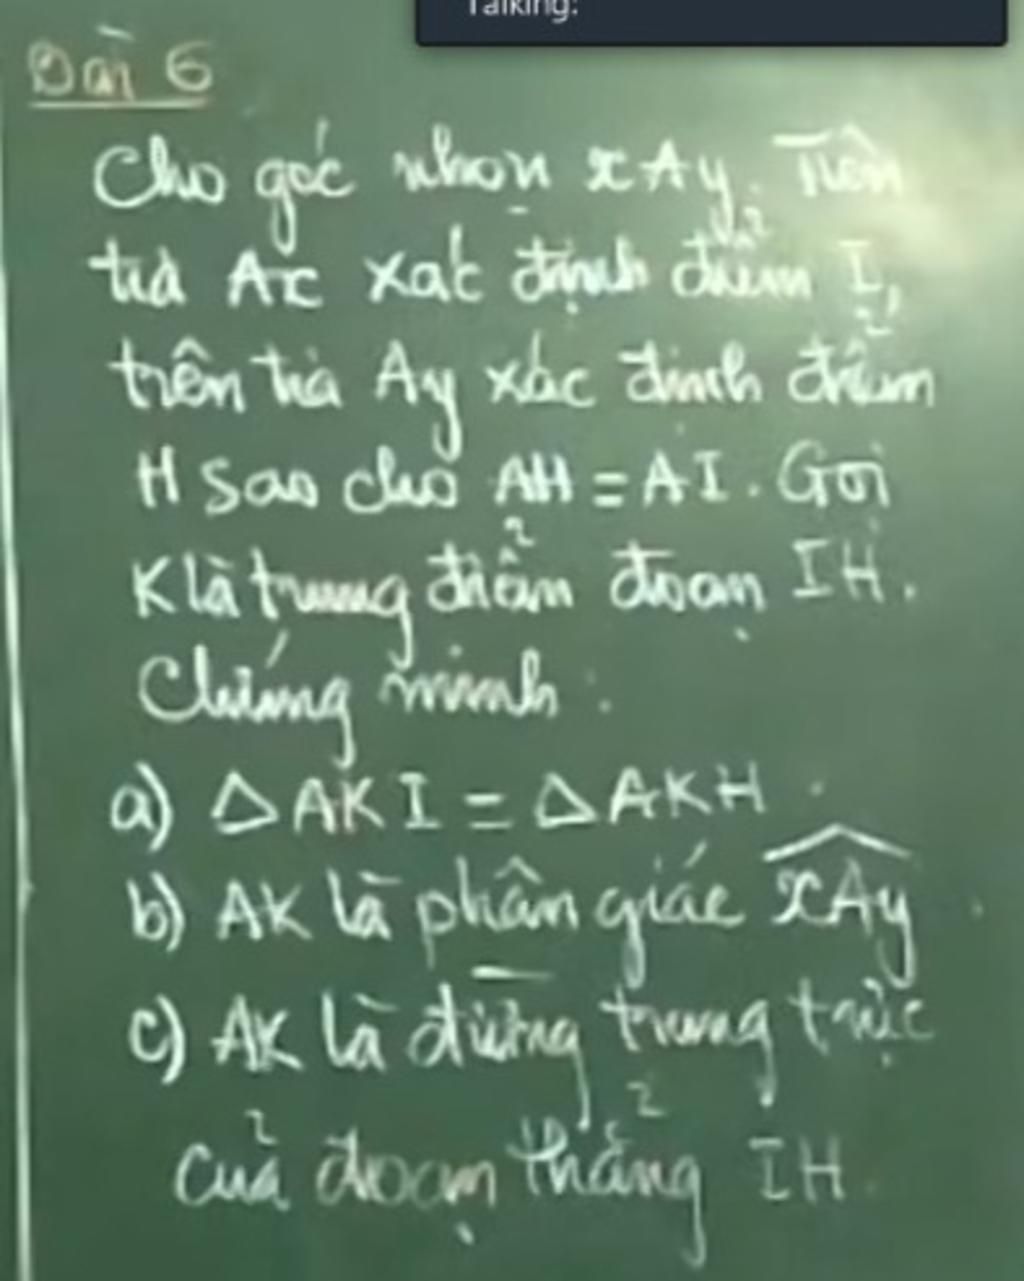 Talking:
Bài 6
Cho góc nhọn xAy. Trên
tia Ax xác định điểm I,
trên tia Ay xác định điểm
H sao cho AH = AI. Gọi
K là trung điểm đoạn IH.
Chứng minh:
a) △AKI = △AKH.
b) AK là phân giác xAy.
c) AK là đường trung trực
của đoạn thẳng IH.